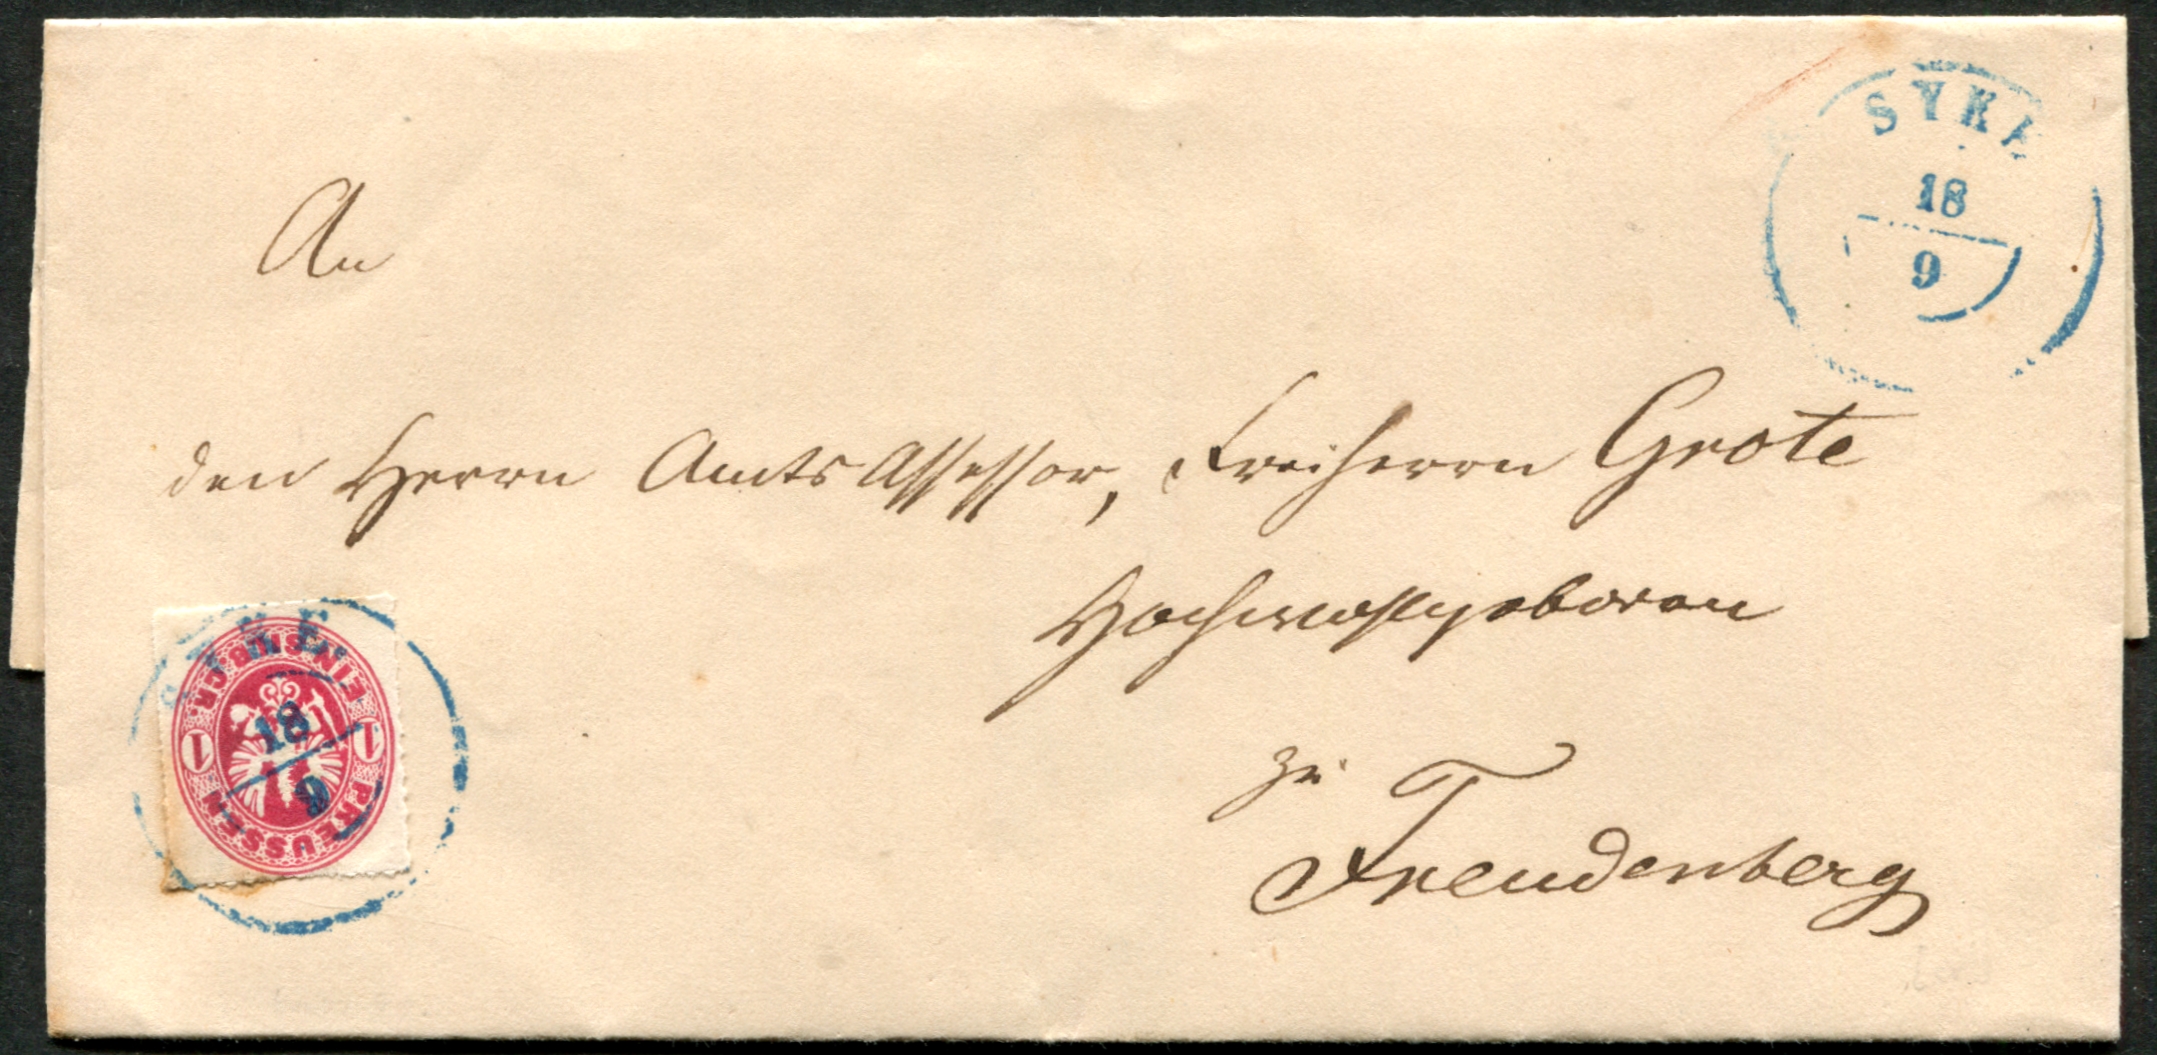 SYKE
18
9
An
den Herrn Amts Assessor, Freiherrn Grote
Hochwohlgeboren
zu
Freudenberg
SYKE
18
9
EIN SILBERGR.
1 1
PREUSSEN